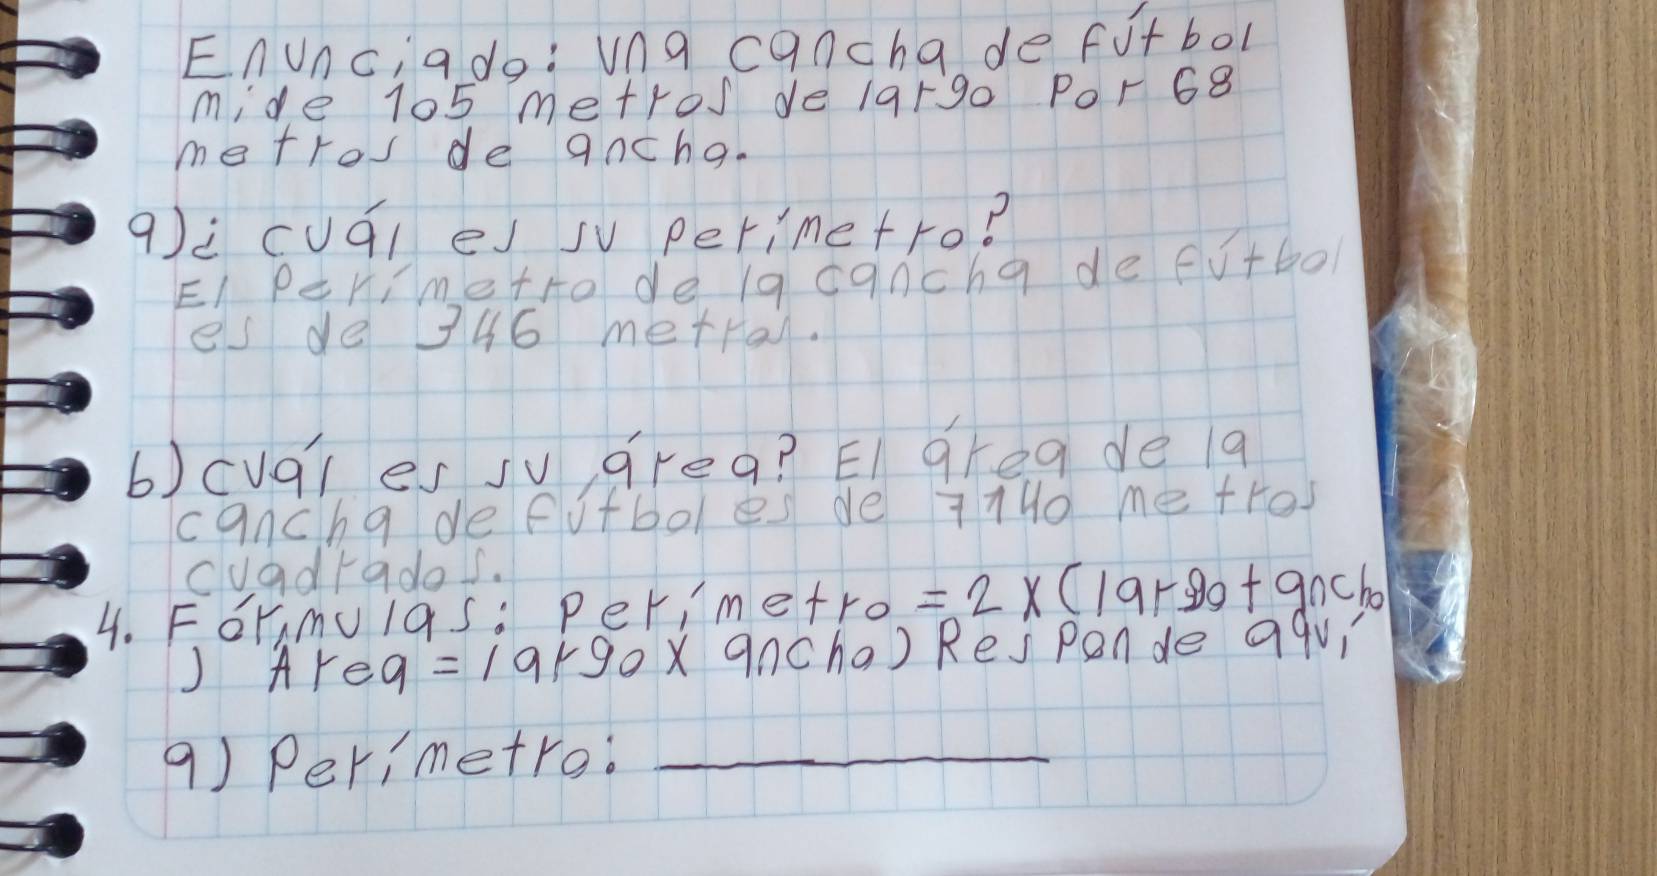 Enunciado: una cancha de fútbol
mide 105 metros de largo por 68
metros de ancho.
a) ¿cuál es su perímetro?
El perímetro de la cancha de fútbol
es de 346 metros.
b) cuál es su área? El área de la
cancha de fútbol es de 7140 metros
cuadrados.
4. Fórmulas: perímetro = 2 x (largo + ancho
) Área = largo x ancho) Responde aquí
a) Perímetro: ___________